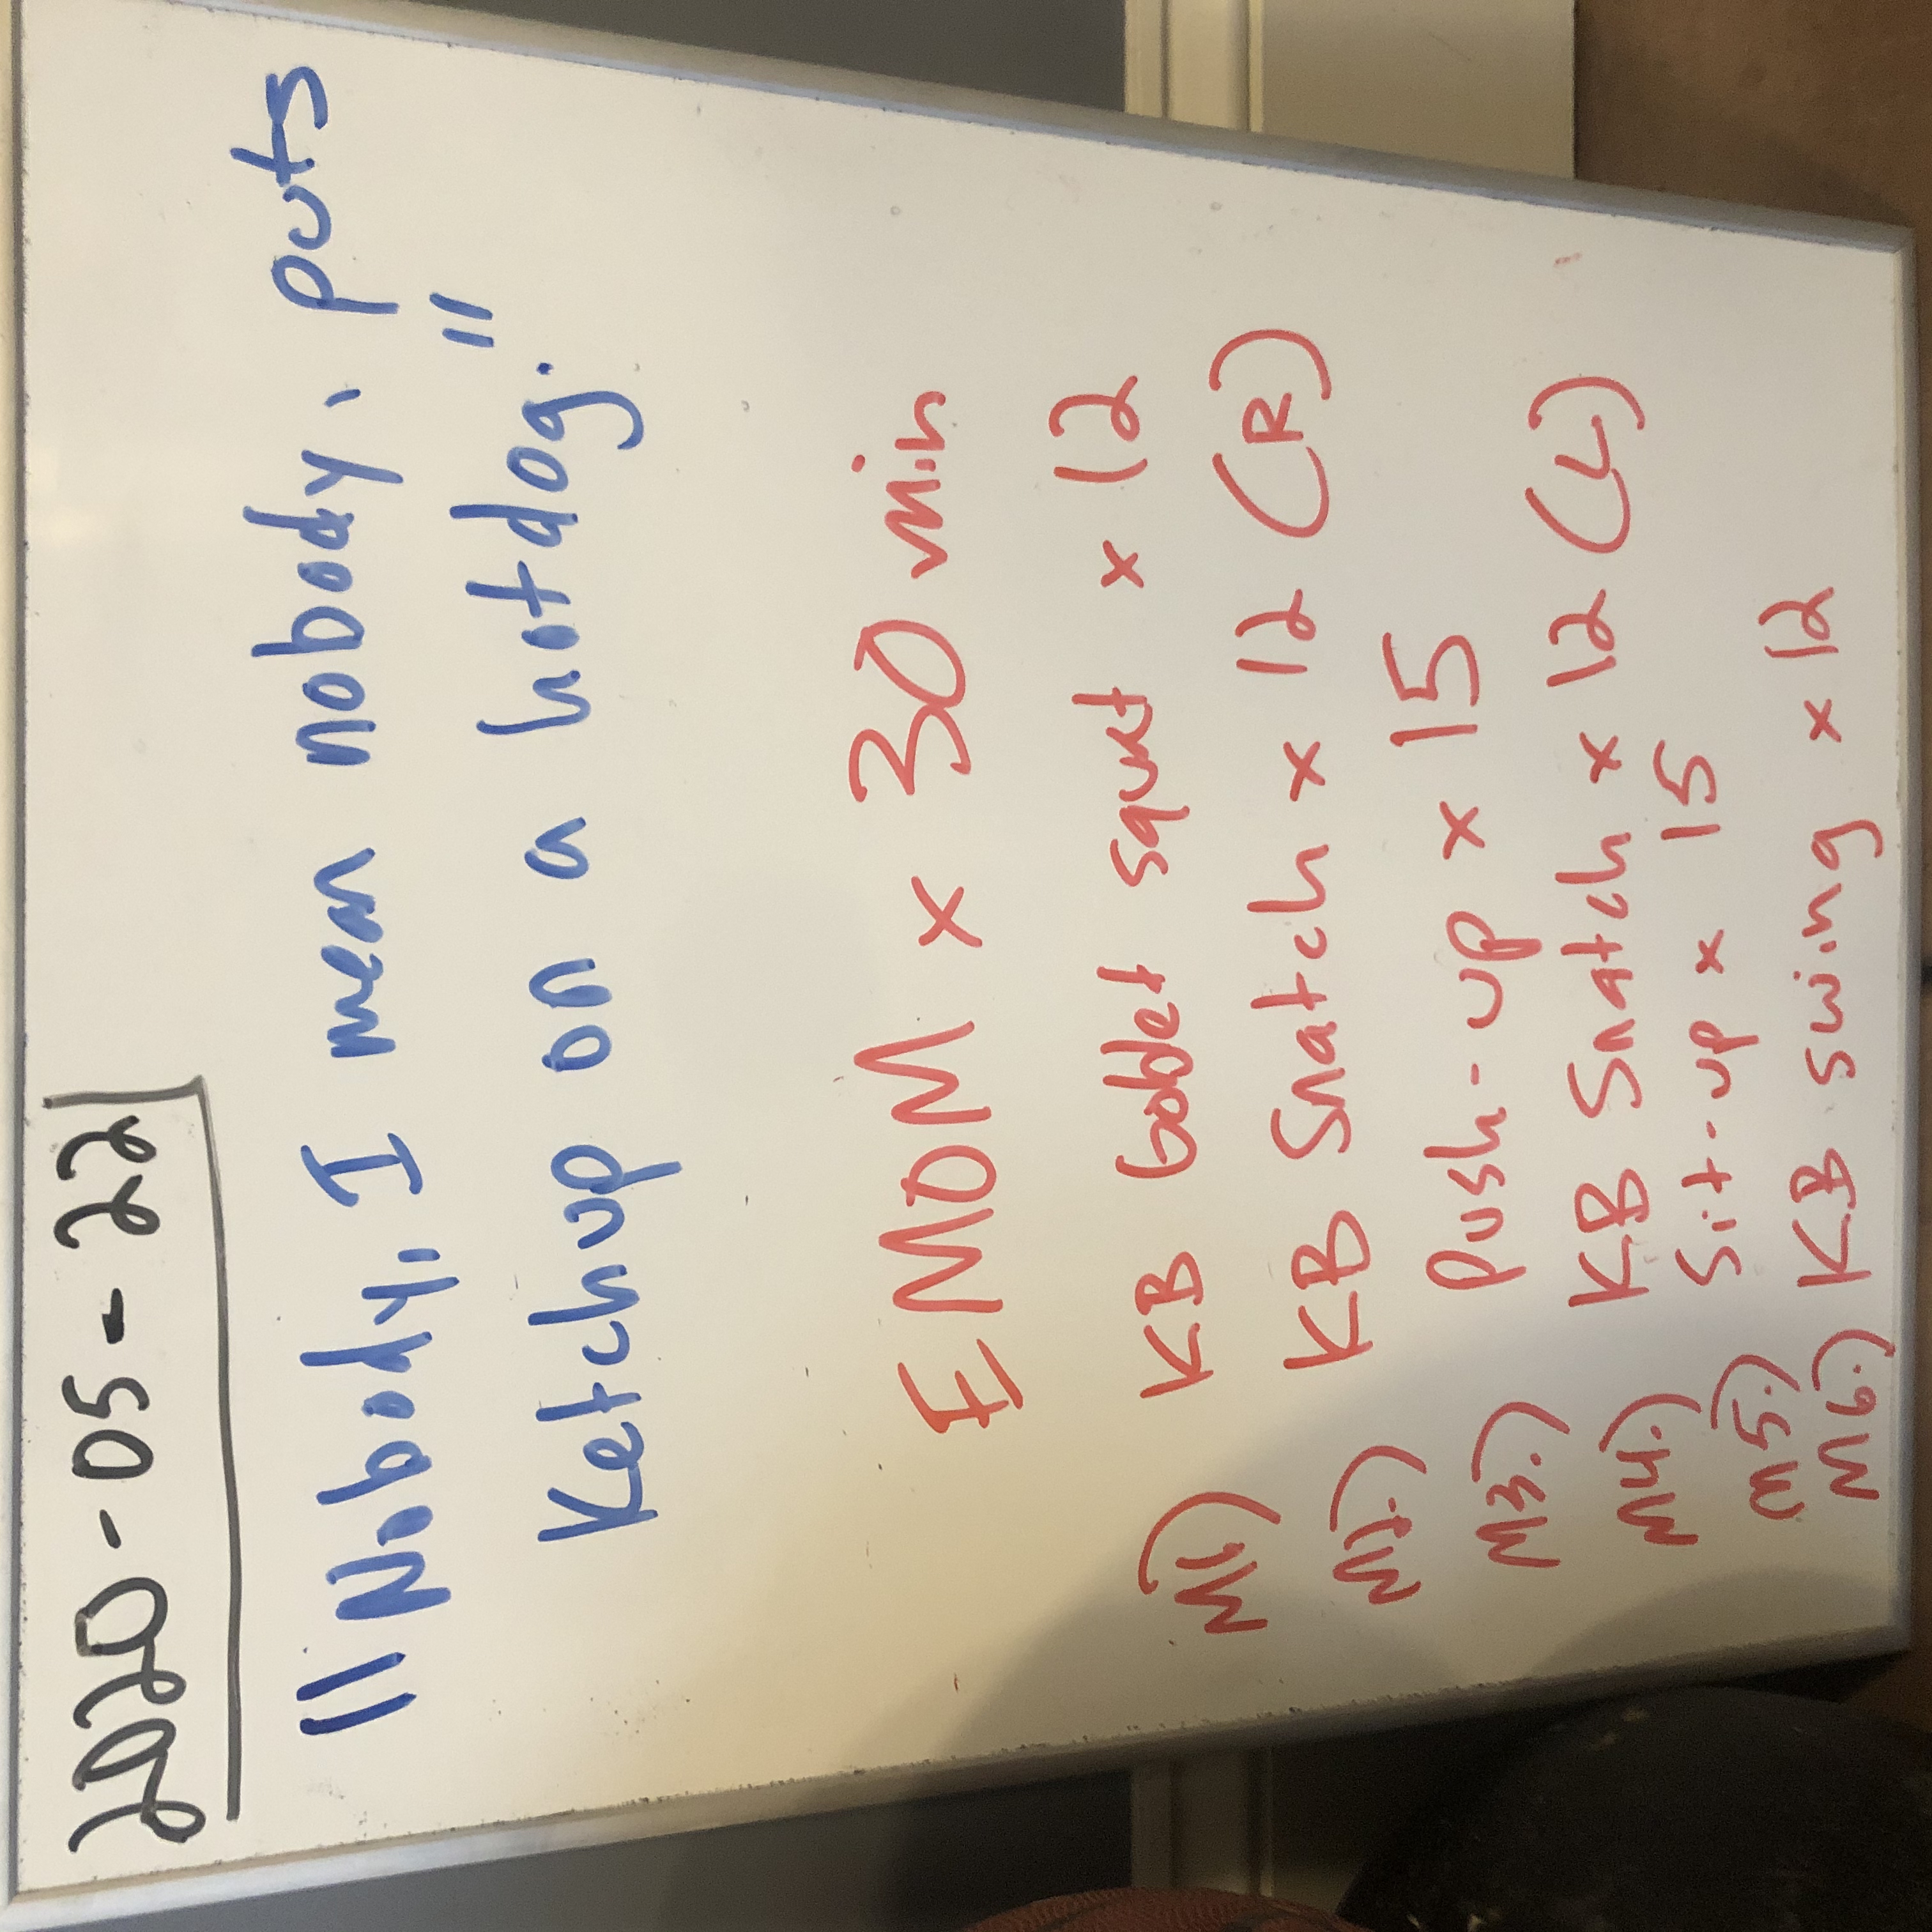 2020-05-22
"Nobody, I mean nobody, puts
Ketchup on a hotdog."
EMOM x 30 min
M1) KB Goblet squat x 12
M2.) KB Snatch x 12 (R)
M3.) Push-up x 15
M4.) KB Snatch x 12 (L)
M5.) Sit-up x 15
M6.) KB swing x 12